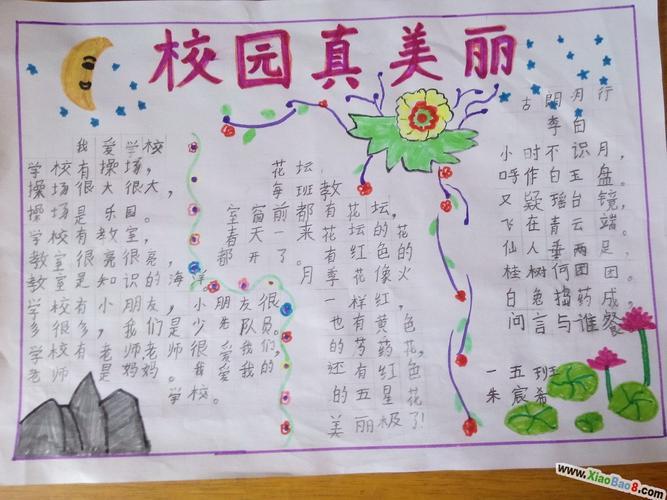 校园真美丽
我爱学校
学校有操场，
操场很大很大，
操场是乐园。
学校有教室，
教室很亮很亮，
教室是知识的海洋。
学校有小朋友，小朋友很
多很多，我们是少先队员。
学校有老师老师很爱我们，
老师是妈妈。我爱我的
学校。
花坛
每班教
室窗前都有花坛，
春天一来花坛的花
都开了。有红色的
月季花像火
一样红，
也有黄色
的芍药花，
还有红色
的五星花
美丽极了！
古朗月行
李白
小时不识月，
呼作白玉盘。
又疑瑶台镜，
飞在青云端。
仙人垂两足，
桂树何团团。
白兔捣药成，
问言与谁餐
一五班
朱宸希
www.XiaoBao8.com